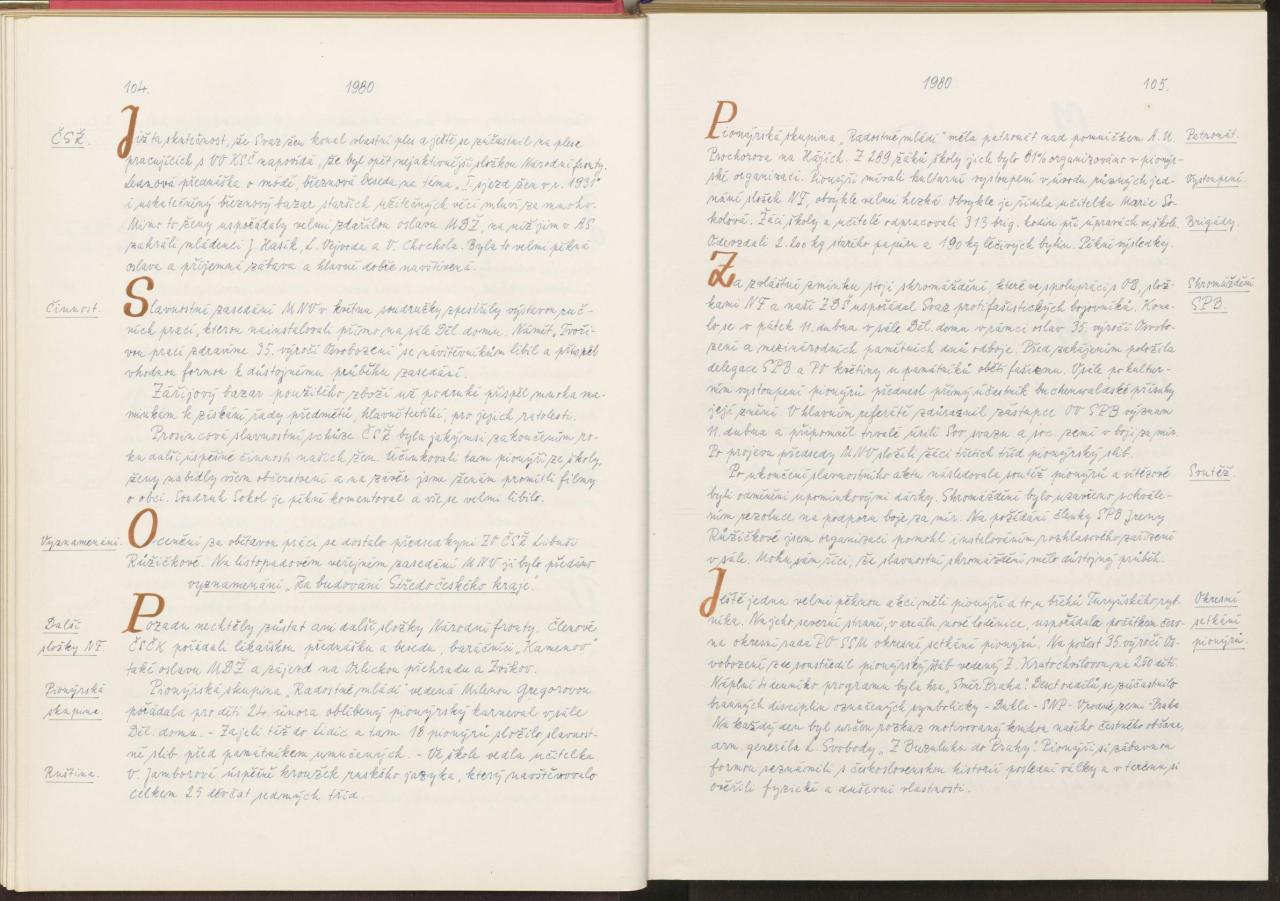 104.
1980
ČSŽ.
Již ta skutečnost, že Svaz žen konal vlastní ples a ještě se zúčastnil na plese
pracujících s VO KSČ napovídá, že byl opět nejaktivnější složkou Národní fronty.
Lednová přednáška o módě, březnová beseda na téma „I. sjezd žen v r. 1931"
i uskutečněný březnový bazar starších užitečných věcí mluví za mnoho.
Mimo to ženy uspořádaly velmi zdařilou oslavu MDŽ, na níž jim v AS
zahráli mládenci J. Hasík, L. Vejvoda a V. Chochola. Byla to velmi pěkná
oslava a příjemná zábava a hlavně dobře navštívená.
Činnost.
Slavnostní zasedání MNV v květnu soudružky zpestřily výstavou ruč-
ních prací, kterou nainstalovali přímo na sále Děl. domu. Námět „Tvoři-
vou prací zdravíme 35. výročí Osvobození" se návštěvníkům líbil a přispěl
vhodnou formou k důstojnému průběhu zasedání.
Zářijový bazar použitého zboží už po druhé přispěl mnoha ma-
minkám k získání řady předmětů, hlavně textilií, pro jejich ratolesti.
Prosincová slavnostní schůze ČSŽ byla jakýmsi zakončením ro-
ku další úspěšné činnosti našich žen. Účinkovali tam pionýři ze školy,
ženy nabídly všem občerstvení a na závěr jsme ženám promítli filmy
o obci. Soudruh Sokol je pěkně komentoval a vše se velmi líbilo.
Vyznamenání.
Ocenění za obětavou práci se dostalo předsedkyni ZO ČSŽ Libuši
Růžičkové. Na listopadovém veřejném zasedání MNV jí bylo předáno
vyznamenání „Za budování Středočeského kraje".
Další
složky NF.
Pozadu nechtěly zůstat ani další složky Národní fronty. Členové
ČSČK pořádali lékařskou přednášku a besedu, baráčníci „Kamenov"
také oslavu MDŽ a zájezd na Orlickou přehradu a Zvíkov.
Pionýrská
skupina.
Pionýrská skupina „Radostné mládí" vedená Milenou Gregorovou
pořádala pro děti 24. února oblíbený pionýrský karneval v sále
Děl. domu. - Zajeli též do Lidic a tam 18 pionýrů složilo slavnost-
ní slib před památníkem umučených. - Ve škole vedla učitelka
Ruština.
V. Jamborová úspěšně kroužek ruského jazyka, který navštěvovalo
celkem 25 děvčat sedmých tříd.
1980
105.
Pionýrská skupina „Radostné mládí" měla patronát nad pomníčkem A. U.
Patronát.
Prochorova na Hájích. Z 289 žáků školy jich bylo 81% organizováno v pionýr-
ské organizaci. Pionýři mívali kulturní vystoupení v úvodu různých jed-
Vystoupení.
nání složek NF, obvykle velmi hezká. Obvykle je řídila učitelka Marie So-
kolová. Žáci školy a učitelé odpracovali 313 brig. hodin při úpravách ve škole.
Brigády.
Odevzdali 2.200 kg starého papíru a 190 kg léčivých bylin. Pěkné výsledky.
Za zvláštní zmínku stojí shromáždění, které ve spolupráci s OB, slož-
Shromáždění
SPB.
kami NF a naší ZDŠ uspořádal Svaz protifašistických bojovníků. Kona-
lo se v pátek 11. dubna v sále Děl. domu v rámci oslav 35. výročí Osvobo-
zení a mezinárodních památných dnů odboje. Před zahájením položila
delegace SPB a PO květiny u památníků obětí fašismu. V sále po kultur-
ním vystoupení pionýrů přednesl přímý účastník buchenwaldské přísahy
její znění. V hlavním referátě zdůraznil zástupce OV SPB význam
11. dubna a připomněl trvalé úsilí Sov. svazu a soc. zemí v boji za mír.
Po projevu předsedy MNV složili žáci třetích tříd pionýrský slib.
Po ukončení slavnostního aktu následovala soutěž pionýrů a vítězové
Soutěž.
byli odměněni upomínkovými dárky. Shromáždění bylo uzavřeno schvále-
ním rezoluce na podporu boje za mír. Na požádání členky SPB Jreny
Růžičkové jsem organizaci pomohl instalováním rozhlasového zařízení
v sále. Mohu sám říci, že slavnostní shromáždění mělo důstojný průběh.
Ještě jednu velmi pěknou akci měli pionýři a to u břehů Turyňského ryb-
Okresní
setkání
pionýrů.
níka. Na jeho severní straně, v areálu nové loděnice, uspořádala počátkem červ-
na okresní rada PO SSM okresní setkání pionýrů. Na počest 35. výročí Os-
vobození zde soustředil pionýrský štáb vedený Z. Kratochvílovou na 250 dětí.
Náplní 4 denního programu byla hra „Směr Praha". Deset oddílů se zúčastnilo
branných disciplin označených symbolicky - Dukla - SNP - Vrodné zemi - Praha
Na každý den byl určen rozkaz motivovaný knihou našeho čestného občana,
arm. generála L. Svobody „Z Buzuluku do Prahy". Pionýři si zábavnou
formou seznámili s československou historií poslední války a v terénu si
ověřili fyzické a duševní vlastnosti.